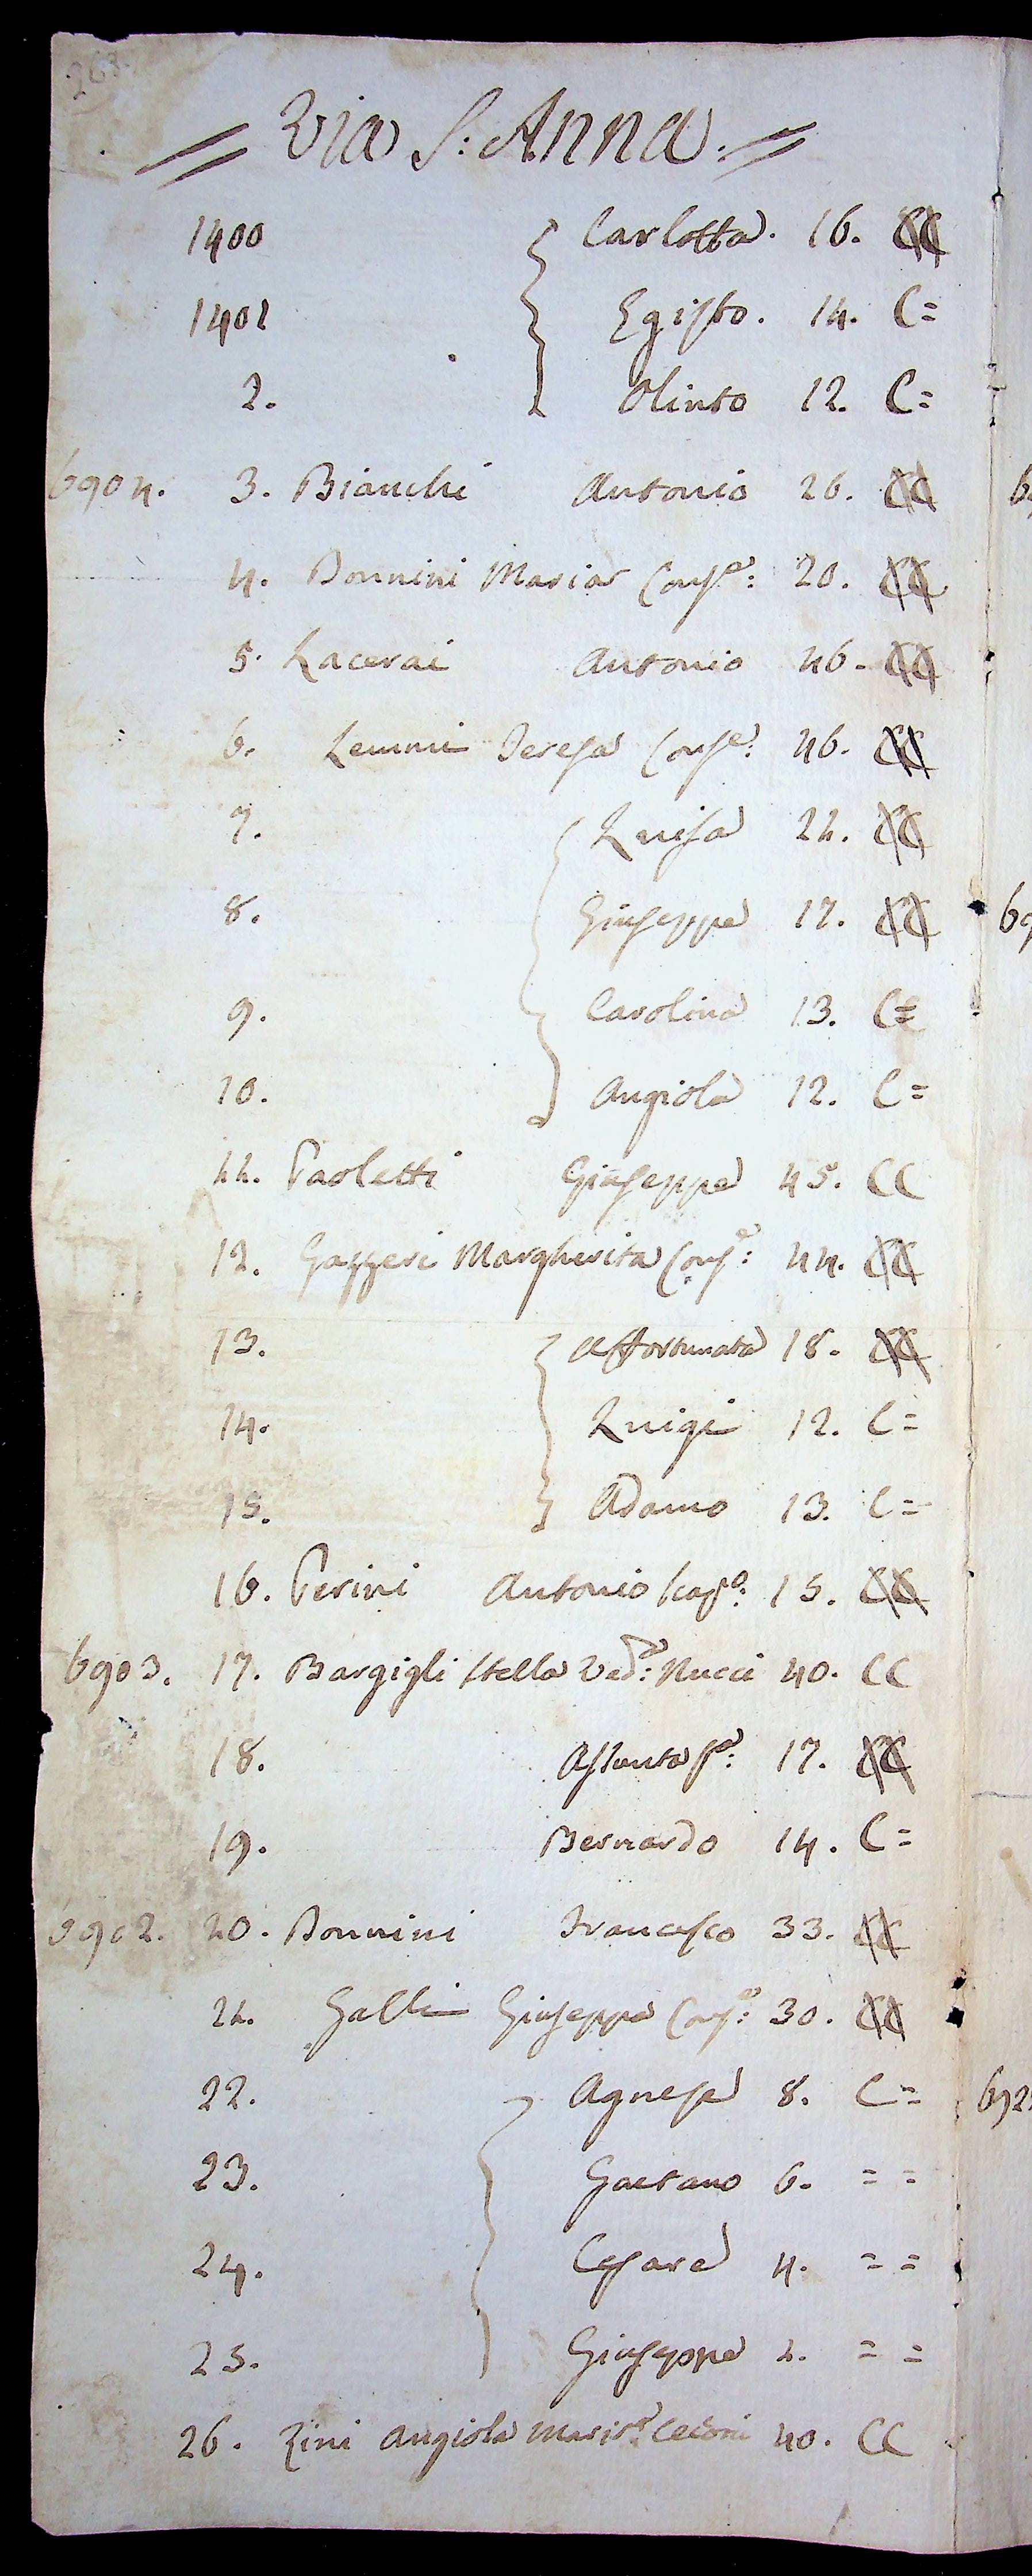 268.
= Via S: Anna. =
1400 Carlotta. 16. CC
1401 Egisto. 14. C=
2. Olinto 12. C=
6904. 3. Bianchi Antonio 26. CC
4. Bonnini Maria Conse: 20. CC
5. Lacerai Antonio 46. CC
6. Lemmi Teresa Conse: 46. CC
7. Luisa 21. CC
8. Giuseppe 17. CC
9. Carolina 13. C=
10. Angiola 12. C=
11. Paoletti Giuseppe 45. CC
12. Gazzeri Margherita Conse: 44. CC
13. Affortunata 18. CC
14. Luigi 12. C=
15. Adamo 13. C=
16. Perini Antonio scapo: 15. CC
6903. 17. Bargigli Stella Veda: Nucci 40. CC
18. Assunta fa: 17. CC
19. Bernardo 14. C=
6902. 20. Bonnini Francesco 33. CC
21. Galli Giuseppa Conse: 30. CC
22. Agnese 8. C=
23. Gaetano 6. = =
24. Cesare 4. = =
25. Giuseppe 1. = =
26. Zini Angiola Marita: Cecconi 40. CC